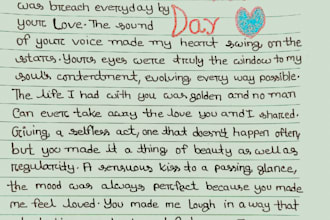 was breach everyday by
your Love. The sound Day
of your voice made my heart swing on the
stars. Yours eyes were truly the window to my
souls contentment, evolving every way possible.
The life I had with you was golden and no man
Can ever take away the love you and I shared.
Giving a selfless act, one that doesn't happen often,
but you made it a thing of beauty as well as
regularity. A sensuous kiss to a passing glance,
the mood was always perfect because you made
me feel loved. You made me laugh in a way that